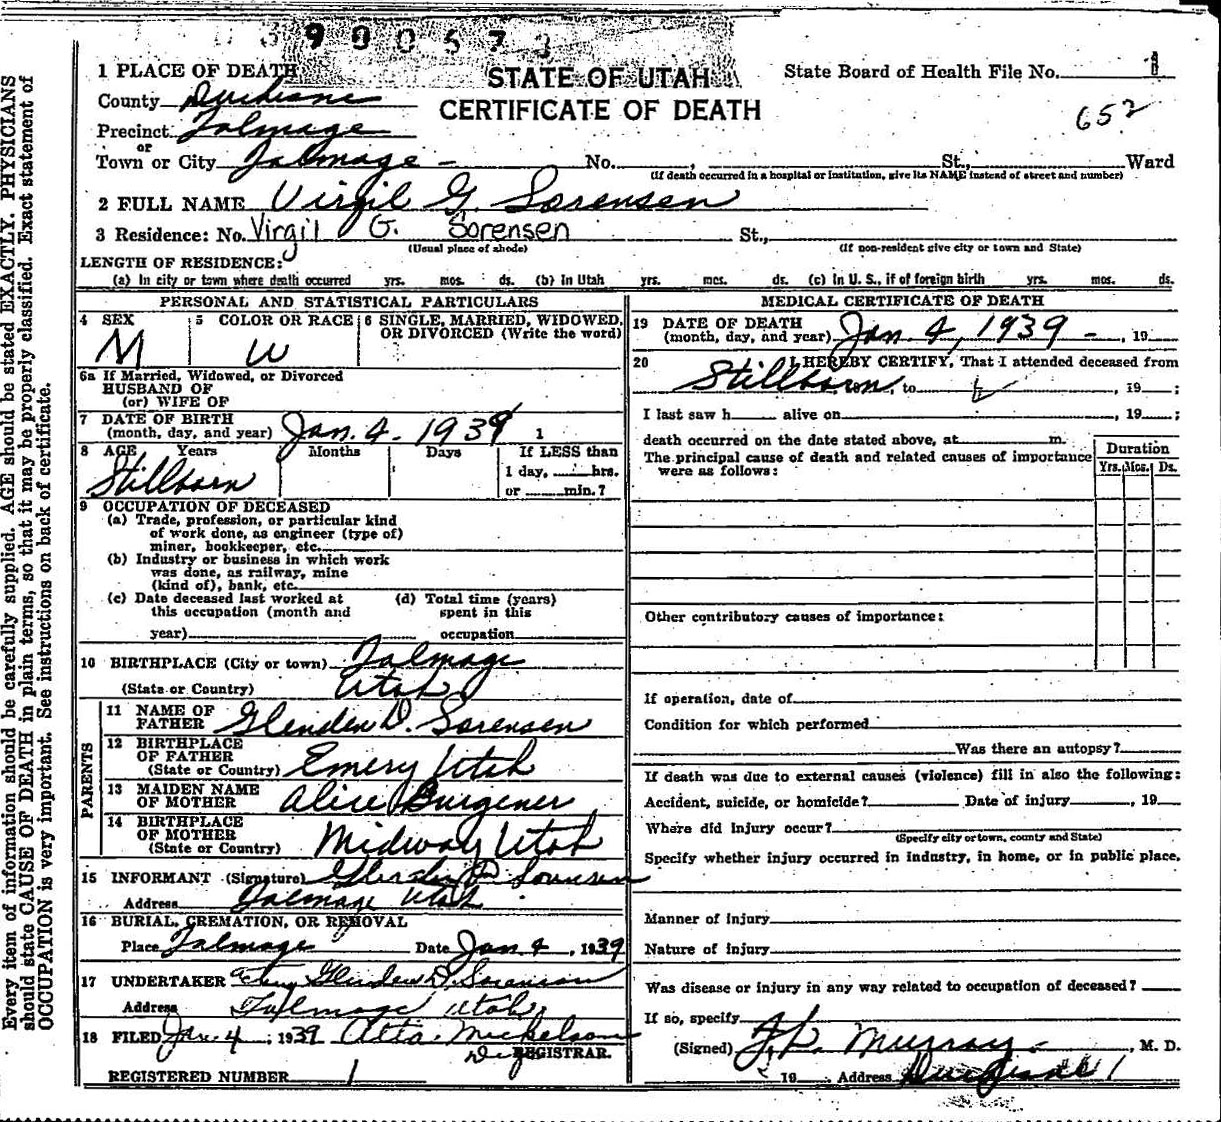 390057
1 PLACE OF DEATH
STATE OF UTAH
State Board of Health File No. 1
County Duchesne
CERTIFICATE OF DEATH
652
Precinct Talmage
or
Town or City Talmage - No. , St., Ward
(If death occurred in a hospital or institution, give its NAME instead of street and number)
2 FULL NAME Virgil G. Sorensen
3 Residence: No. Virgil G. Sorensen St.,
(Usual place of abode) (If non-resident give city or town and State)
LENGTH OF RESIDENCE:
(a) In city or town where death occurred yrs. mos. ds. (b) In Utah yrs. mos. ds. (c) In U. S., if of foreign birth yrs. mos. ds.
PERSONAL AND STATISTICAL PARTICULARS
4 SEX
M
5 COLOR OR RACE
W
6 SINGLE, MARRIED, WIDOWED,
OR DIVORCED (Write the word)
6a If Married, Widowed, or Divorced
HUSBAND OF
(or) WIFE OF
7 DATE OF BIRTH
(month, day, and year) Jan. 4. 1939 1
8 AGE Years Months Days If LESS than
1 day, hrs.
Stillborn
or min.?
9 OCCUPATION OF DECEASED
(a) Trade, profession, or particular kind
of work done, as engineer (type of)
miner, bookkeeper, etc.
(b) Industry or business in which work
was done, as railway, mine
(kind of), bank, etc.
(c) Date deceased last worked at (d) Total time (years)
this occupation (month and spent in this
year) occupation
10 BIRTHPLACE (City or town) Talmage
(State or Country) Utah
PARENTS
11 NAME OF
FATHER Glenden D. Sorensen
12 BIRTHPLACE
OF FATHER
(State or Country) Emery Utah
13 MAIDEN NAME
OF MOTHER Alice Burgener
14 BIRTHPLACE
OF MOTHER
(State or Country) Midway Utah
15 INFORMANT (Signature) Glenden D. Sorensen
Address Talmage Utah
16 BURIAL, CREMATION, OR REMOVAL
Place Talmage Date Jan 4, 1939
17 UNDERTAKER Glenden D. Sorensen
Address Talmage Utah
18 FILED Jan. 4, 1939 Atta Mickelson
Dep REGISTRAR.
REGISTERED NUMBER 1
MEDICAL CERTIFICATE OF DEATH
19 DATE OF DEATH
(month, day, and year) Jan. 4, 1939 - , 19
20 I HEREBY CERTIFY, That I attended deceased from
Stillborn, to , 19 ;
I last saw h alive on , 19 ;
death occurred on the date stated above, at m.
The principal cause of death and related causes of importance
were as follows:
Duration
Yrs. Mos. Ds.
Other contributory causes of importance:
If operation, date of
Condition for which performed
Was there an autopsy?
If death was due to external causes (violence) fill in also the following:
Accident, suicide, or homicide? Date of injury , 19
Where did injury occur?
(Specify city or town, county and State)
Specify whether injury occurred in industry, in home, or in public place.
Manner of injury
Nature of injury
Was disease or injury in any way related to occupation of deceased?
If so, specify
(Signed) J. P. Murray , M. D.
19 Address Duchesne
Every item of information should be carefully supplied. AGE should be stated EXACTLY. PHYSICIANS
should state CAUSE OF DEATH in plain terms, so that it may be properly classified. Exact statement of
OCCUPATION is very important. See instructions on back of certificate.